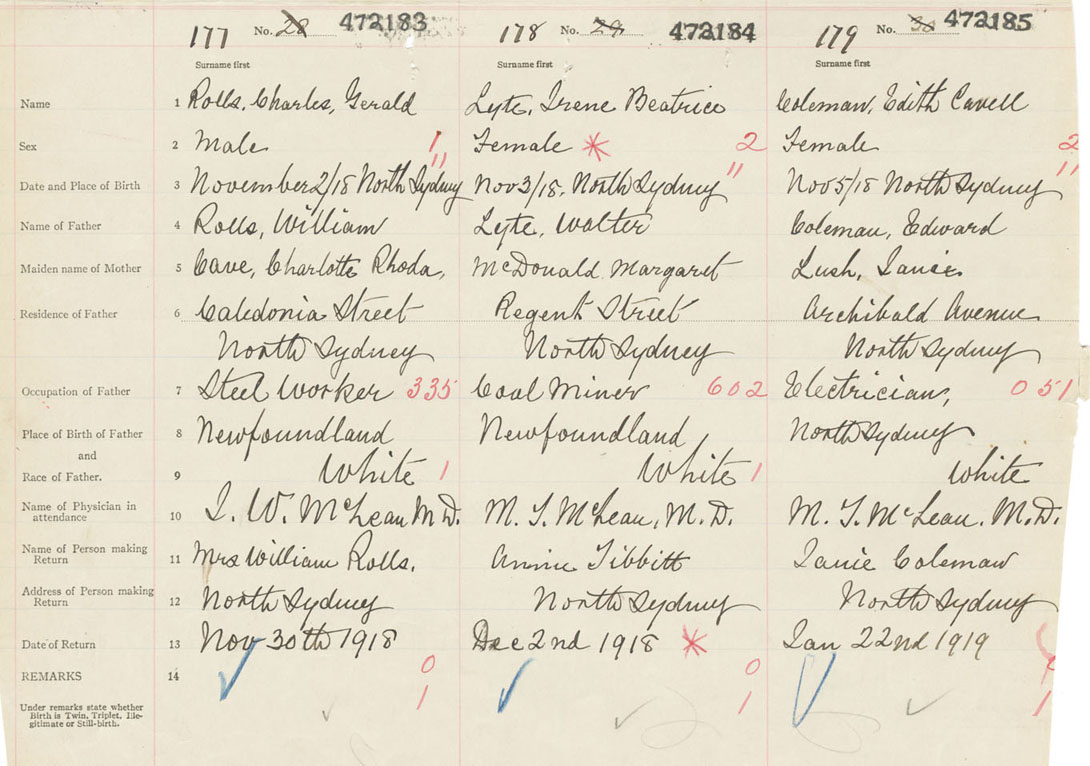 177 No. 28 472183 178 No. 29 472184 179 No. 30 472185
Surname first Surname first Surname first
Name 1 Rolls, Charles, Gerald Lyte, Irene Beatrice Coleman, Edith Cavell
Sex 2 Male 1 Female * 2 Female 2
Date and Place of Birth 3 November 2/18 North Sydney 11 Nov 3/18, North Sydney 11 Nov 5/18 North Sydney 11
Name of Father 4 Rolls, William Lyte, Walter Coleman, Edward
Maiden name of Mother 5 Cave, Charlotte Rhoda, McDonald Margaret Lush, Janie
Residence of Father 6 Caledonia Street Regent Street Archibald Avenue
North Sydney North Sydney North Sydney
Occupation of Father 7 Steel Worker 335 Coal Miner 602 Electrician, 051
Place of Birth of Father 8 Newfoundland Newfoundland North Sydney
and
Race of Father. 9 White 1 White 1 White
Name of Physician in
attendance 10 J. W. McLean M.D. M. T. McLean, M.D. M. T. McLean, M.D.
Name of Person making
Return 11 Mrs William Rolls. Annie Tibbitt Janie Coleman
Address of Person making
Return 12 North Sydney North Sydney North Sydney
Date of Return 13 Nov 30th 1918 Dec 2nd 1918 * Jan 22nd 1919
REMARKS 14 0 0
1 1 1
Under remarks state whether
Birth is Twin, Triplet, Ille-
gitimate or Still-birth.